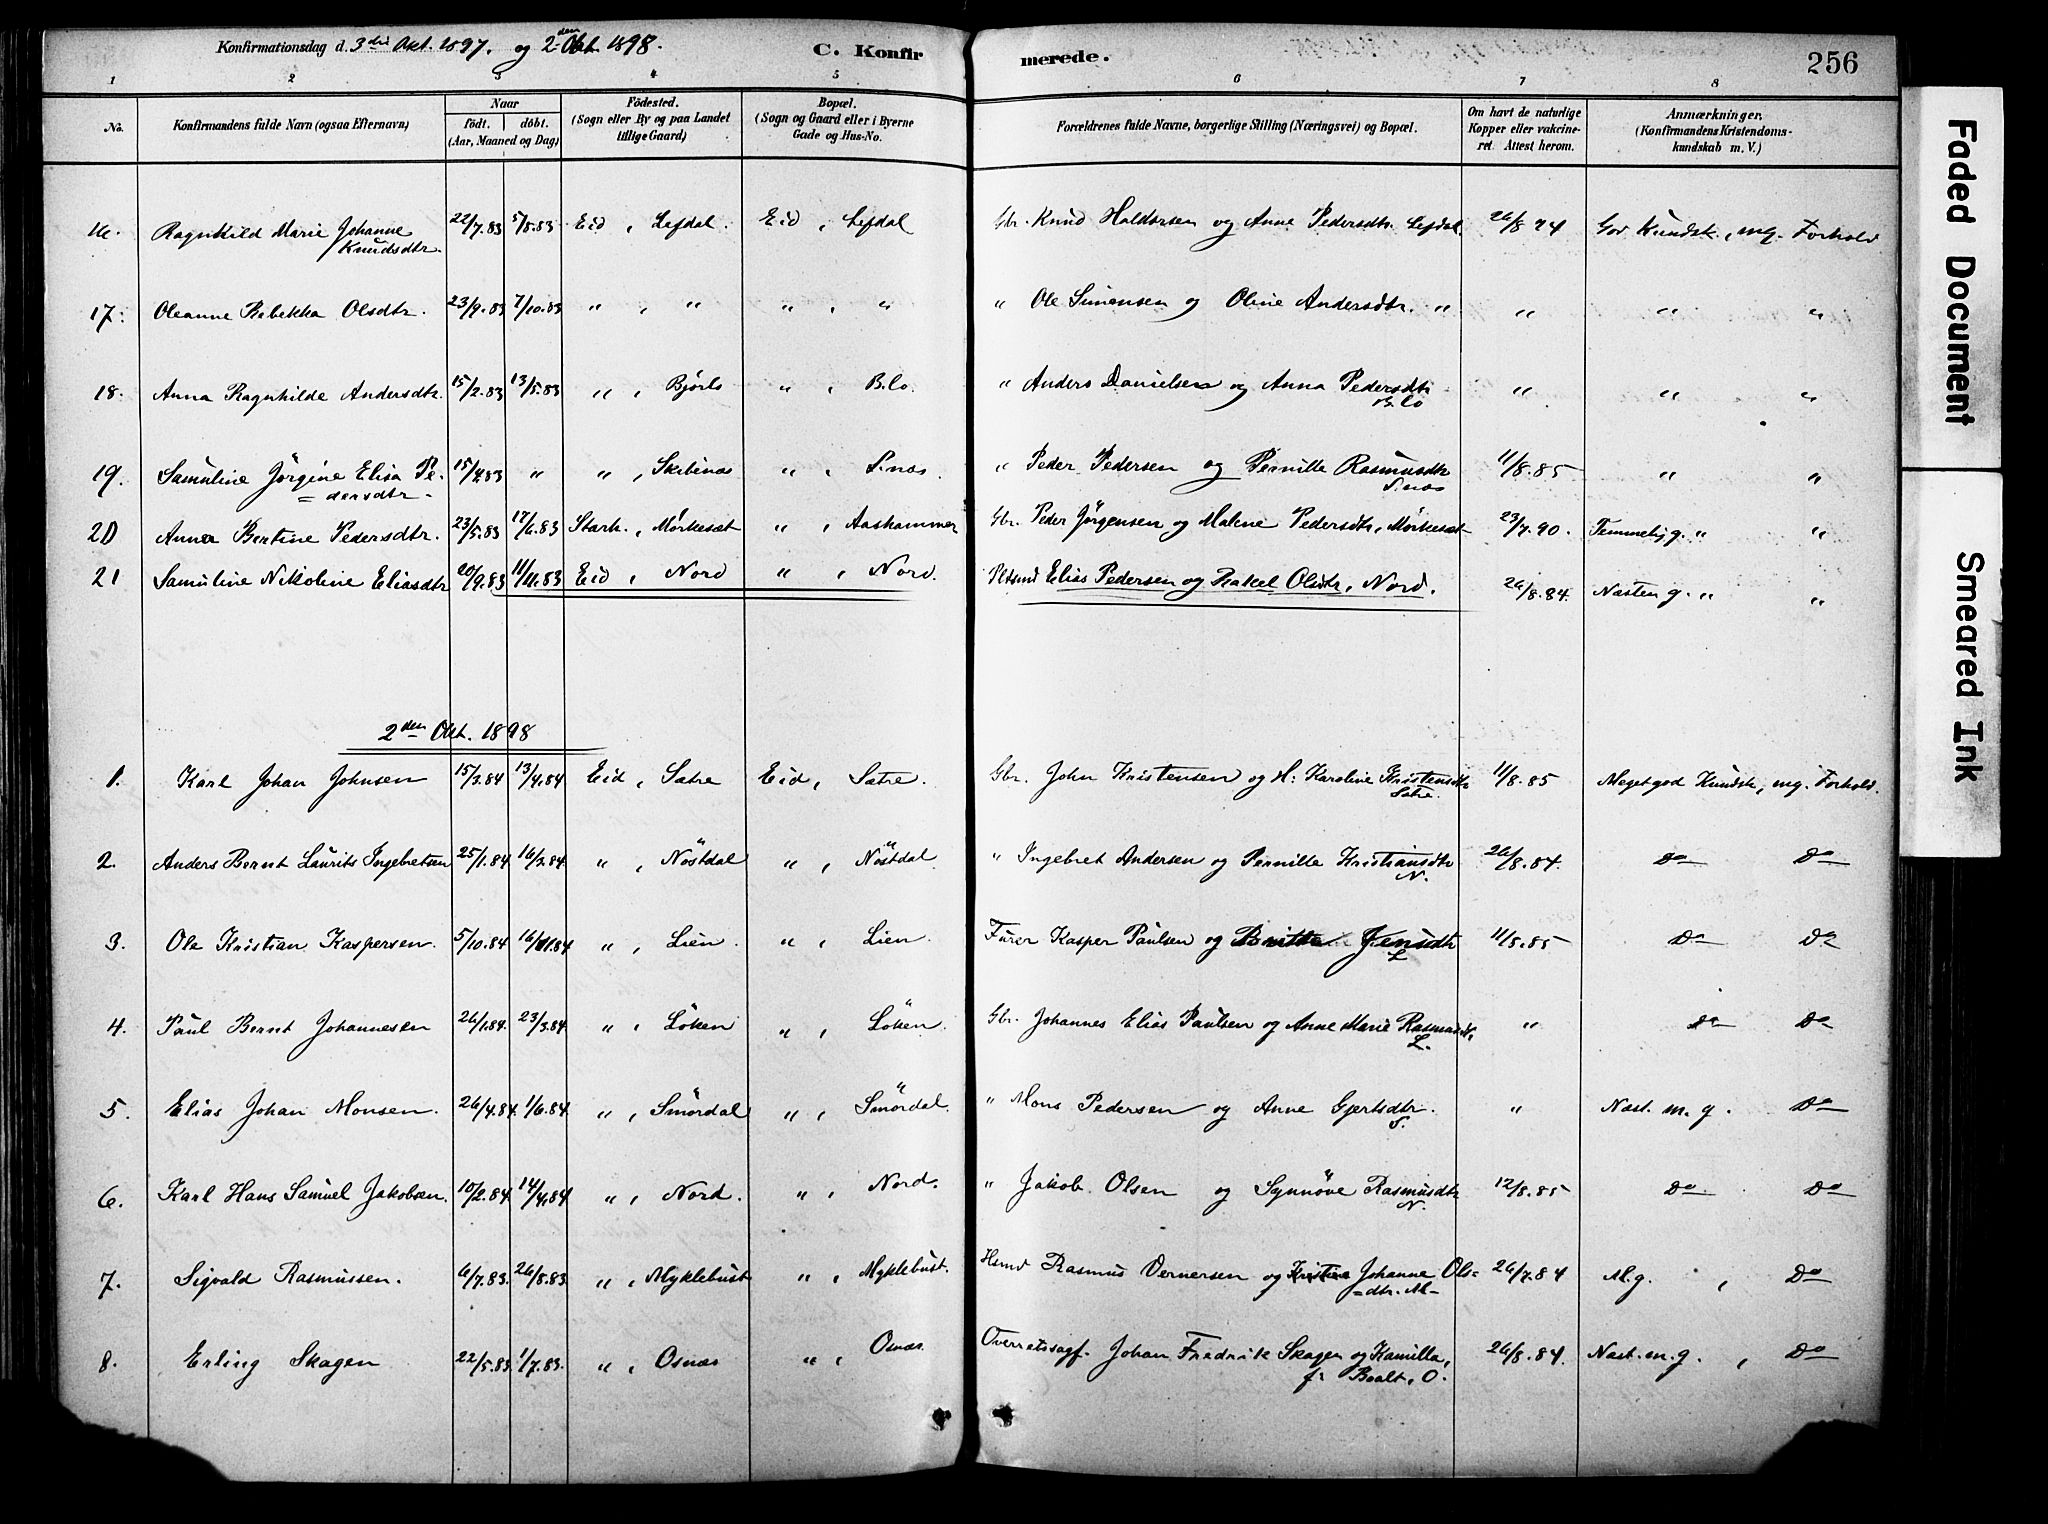 Konfirmationsdag d. 3die Okt. 1897. og 2den Okt. 1898.
C. Konfirmerede.
256
1 2 3 4 5 6 7 8
No.
Konfirmandens fulde Navn (ogsaa Efternavn)
Naar
födt. döbt.
(Aar, Maaned og Dag)
Födested.
(Sogn eller By og paa Landet
tillige Gaard)
Bopæl.
(Sogn og Gaard eller i Byerne
Gade og Hus-No.
Forældrenes fulde Navne, borgerlige Stilling (Næringsvei) og Bopæl.
Om havt de naturlige
Kopper eller vakcineret. Attest herom.
Anmærkninger.
(Konfirmandens Kristendomskundskab m. V.)
16. Ragnhild Marie Johanne 22/7.83 5/8.83 Eid, Lefdal. Eid, Lefdal Gbr. Knud Haldorsen og Anne Pedersdtr. Lefdal. 26/8 84 God Kundsk., mg. Forhold
Knudsdtr.
17. Oleanne Rebekka Olsdtr. 23/9.83 7/10.83 " , " " , " " Ole Simensen og Oline Andersdtr. " " " "
18. Anna Ragnhilde Andersdtr. 15/2.83 13/5.83 " , Bjørlo " , B.lo. " Anders Danielsen og Anna Pedersdtr " " "
B.lo
19. Samuline Jørgine Elisa Pe- 15/4.83 " " , Skibenæs " , S.næs. " Peder Pedersen og Pernille Rasmusdtr 11/8.85 " "
=dersdtr- S.næs
20 Anna Bertine Pedersdtr. 23/5.83 17/6.83 Stårh., Mörkesæt " , Aashammer Gbr. Peder Jørgensen og Malene Pedersdtr, Mörkesæt 23/7.90. Temmelig g. " "
21 Samuline Nikoline Eliasdtr 20/9.83 11/11.83 Eid, Nord " , Nord. Pltsmd Elias Pedersen og Rakel Olsdtr, Nord. 26/8.84. Næsten g. " "
2den Okt. 1898
1. Karl Johan Johnsen 15/3.84 13/4.84 Eid, Sætre Eid, Sætre. Gbr. John Kristensen og H. Karoline Kristensdtr 11/8.85 Meget god Kundsk, mg. Forhold.
Sætre.
2. Anders Bernt Laurits Ingebretsen 25/1.84 16/3.84 " , Nöstdal " , Nöstdal " Ingebret Andersen og Pernille Kristiansdtr 26/8.84. Do Do
N.
3. Ole Kristian Kaspersen. 5/10.84 16/11.84 " , Lien. " , Lien. Furer Kasper Paulsen og Britta Jensdtr 11/8.85 Do Do
L
4. Paul Bernt Johannesen 26/1.84. 23/3.84 " , Löken " , Löken. Gbr. Johannes Elias Paulsen og Anne Marie Rasmusdtr, " Do Do
L.
5. Elias Johan Monsen. 26/4.84. 1/6.84. " , Smördal " , Smördal. " Mons Pedersen og Anne Gjertsdtr. " Næst. m. g. Do
S.
6. Karl Hans Samuel Jakobsen. 10/2.84 14/4.84 " , Nord. " , Nord. " Jakob Olsen og Synnöve Rasmusdtr 12/8.85 Do. Do
N.
7. Sigvald Rasmussen. 6/7.83. 26/8.83. " , Myklebust " , Myklebust. Hsmd Rasmus Vernersen og Kristine Johanne Ols- 26/7.84 M.g. , Do
=dtr. M-
8. Erling Skagen 22/5.83. 1/7.83. " , Osnæs " , Osnæs. Overretssagf. Johan Fredrik Skagen og Kamilla, 26/8.84. Næst. m. g. , Do
f: Boalt, O.
Faded Document
Smeared Ink